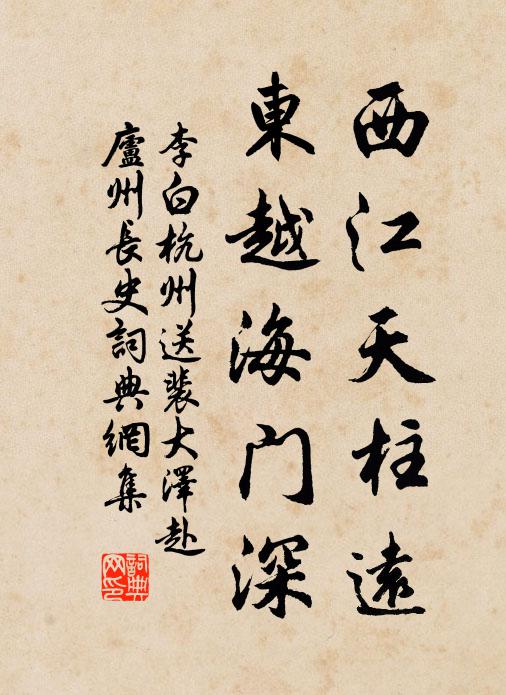 西江天柱遠
東越海门深
李白杭州送裴大澤赴
廬州長史詞典網集
詞典
网印